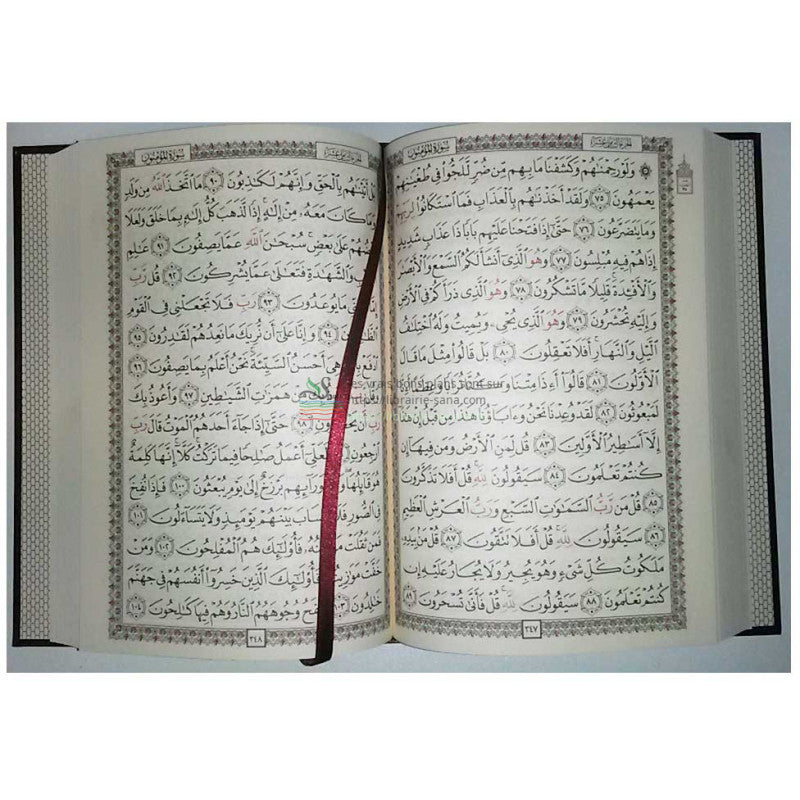 سورة المؤمنون
الجزء الثامن عشر
۞ وَلَوْ رَحِمْنَٰهُمْ وَكَشَفْنَا مَا بِهِم مِّن ضُرٍّ لَّلَجُّوا۟ فِى طُغْيَٰنِهِمْ
يَعْمَهُونَ ٧٥ وَلَقَدْ أَخَذْنَٰهُم بِٱلْعَذَابِ فَمَا ٱسْتَكَانُوا۟ لِرَبِّهِمْ
وَمَا يَتَضَرَّعُونَ ٧٦ حَتَّىٰٓ إِذَا فَتَحْنَا عَلَيْهِم بَابًا ذَا عَذَابٍ شَدِيدٍ
إِذَا هُمْ فِيهِ مُبْلِسُونَ ٧٧ وَهُوَ ٱلَّذِىٓ أَنشَأَ لَكُمُ ٱلسَّمْعَ وَٱلْأَبْصَٰرَ
وَٱلْأَفْـِٔدَةَ قَلِيلًا مَّا تَشْكُرُونَ ٧٨ وَهُوَ ٱلَّذِى ذَرَأَكُمْ فِى ٱلْأَرْضِ
وَإِلَيْهِ تُحْشَرُونَ ٧٩ وَهُوَ ٱلَّذِى يُحْىِۦ وَيُمِيتُ وَلَهُ ٱخْتِلَٰفُ
ٱلَّيْلِ وَٱلنَّهَارِ أَفَلَا تَعْقِلُونَ ٨٠ بَلْ قَالُوا۟ مِثْلَ مَا قَالَ
ٱلْأَوَّلُونَ ٨١ قَالُوٓا۟ أَءِذَا مِتْنَا وَكُنَّا تُرَابًا وَعِظَٰمًا أَءِنَّا
لَمَبْعُوثُونَ ٨٢ لَقَدْ وُعِدْنَا نَحْنُ وَءَابَآؤُنَا هَٰذَا مِن قَبْلُ إِنْ هَٰذَآ
إِلَّآ أَسَٰطِيرُ ٱلْأَوَّلِينَ ٨٣ قُل لِّمَنِ ٱلْأَرْضُ وَمَن فِيهَآ إِن
كُنتُمْ تَعْلَمُونَ ٨٤ سَيَقُولُونَ لِلَّهِ قُلْ أَفَلَا تَذَكَّرُونَ
٨٥ قُلْ مَن رَّبُّ ٱلسَّمَٰوَٰتِ ٱلسَّبْعِ وَرَبُّ ٱلْعَرْشِ ٱلْعَظِيمِ
٨٦ سَيَقُولُونَ لِلَّهِ قُلْ أَفَلَا تَتَّقُونَ ٨٧ قُلْ مَنۢ بِيَدِهِۦ
مَلَكُوتُ كُلِّ شَىْءٍ وَهُوَ يُجِيرُ وَلَا يُجَارُ عَلَيْهِ إِن
كُنتُمْ تَعْلَمُونَ ٨٨ سَيَقُولُونَ لِلَّهِ قُلْ فَأَنَّىٰ تُسْحَرُونَ ٨٩
٣٤٧
سورة المؤمنون
الجزء الثامن عشر
بَلْ أَتَيْنَٰهُم بِٱلْحَقِّ وَإِنَّهُمْ لَكَٰذِبُونَ ٩٠ مَا ٱتَّخَذَ ٱللَّهُ مِن وَلَدٍ
وَمَا كَانَ مَعَهُۥ مِنْ إِلَٰهٍ إِذًا لَّذَهَبَ كُلُّ إِلَٰهٍۭ بِمَا خَلَقَ وَلَعَلَا
بَعْضُهُمْ عَلَىٰ بَعْضٍ سُبْحَٰنَ ٱللَّهِ عَمَّا يَصِفُونَ ٩١ عَٰلِمِ
ٱلْغَيْبِ وَٱلشَّهَٰدَةِ فَتَعَٰلَىٰ عَمَّا يُشْرِكُونَ ٩٢ قُل رَّبِّ
مَا يُوعَدُونَ ٩٣ رَبِّ فَلَا تَجْعَلْنِى فِى ٱلْقَوْمِ
ٱلظَّٰلِمِينَ ٩٤ وَإِنَّا عَلَىٰٓ أَن نُّرِيَكَ مَا نَعِدُهُمْ لَقَٰدِرُونَ ٩٥
ٱدْفَعْ بِٱلَّتِى هِىَ أَحْسَنُ ٱلسَّيِّئَةَ نَحْنُ أَعْلَمُ بِمَا يَصِفُونَ ٩٦
مِنْ هَمَزَٰتِ ٱلشَّيَٰطِينِ ٩٧ وَأَعُوذُ بِكَ
رَبِّ أَن يَحْضُرُونِ ٩٨ حَتَّىٰٓ إِذَا جَآءَ أَحَدَهُمُ ٱلْمَوْتُ قَالَ رَبِّ
ٱرْجِعُونِ لَعَلِّىٓ أَعْمَلُ صَٰلِحًا فِيمَا تَرَكْتُ كَلَّآ إِنَّهَا كَلِمَةٌ
هُوَ قَآئِلُهَا وَمِن وَرَآئِهِم بَرْزَخٌ إِلَىٰ يَوْمِ يُبْعَثُونَ ١٠٠ فَإِذَا نُفِخَ
فِى ٱلصُّورِ فَلَآ أَنسَابَ بَيْنَهُمْ يَوْمَئِذٍ وَلَا يَتَسَآءَلُونَ ١٠١
فَمَن ثَقُلَتْ مَوَٰزِينُهُۥ فَأُو۟لَٰٓئِكَ هُمُ ٱلْمُفْلِحُونَ ١٠٢ وَمَنْ
خَفَّتْ مَوَٰزِينُهُۥ فَأُو۟لَٰٓئِكَ ٱلَّذِينَ خَسِرُوٓا۟ أَنفُسَهُمْ فِى جَهَنَّمَ
خَٰلِدُونَ ١٠٣ تَلْفَحُ وُجُوهَهُمُ ٱلنَّارُ وَهُمْ فِيهَا كَٰلِحُونَ ١٠٤
٣٤٨
Les vrais bons plans sont sur
https://librairie-sana.com